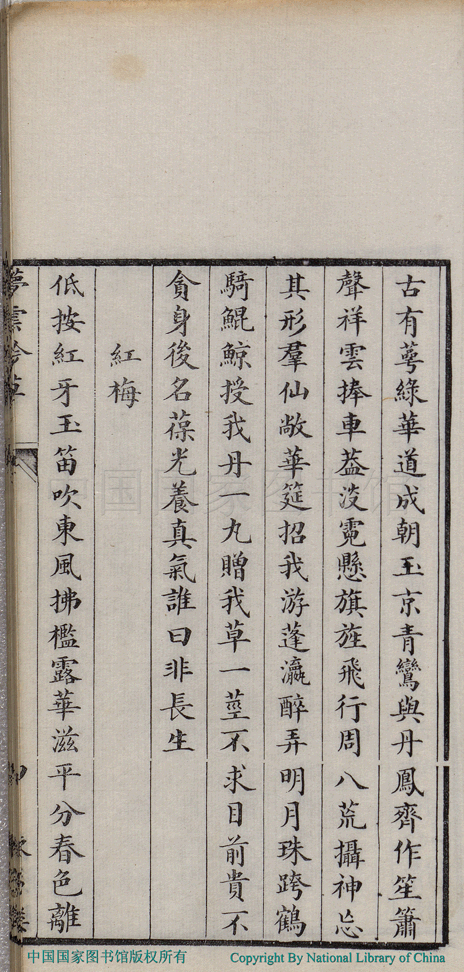 古有蕚綠華道成朝玉京青鸞與丹鳳齊作笙簫
聲祥雲捧車葢淩霓懸旗旌飛行周八荒攝神忘
其形羣仙敞華筵招我游蓬瀛醉弄明月珠跨鶴
騎鯤鯨授我丹一丸贈我草一莖不求目前貴不
貪身後名葆光養真氣誰曰非長生
紅梅
低按紅牙玉笛吹東風拂檻露華滋平分春色離
中国国家图书馆版权所有
Copyright By National Library of China